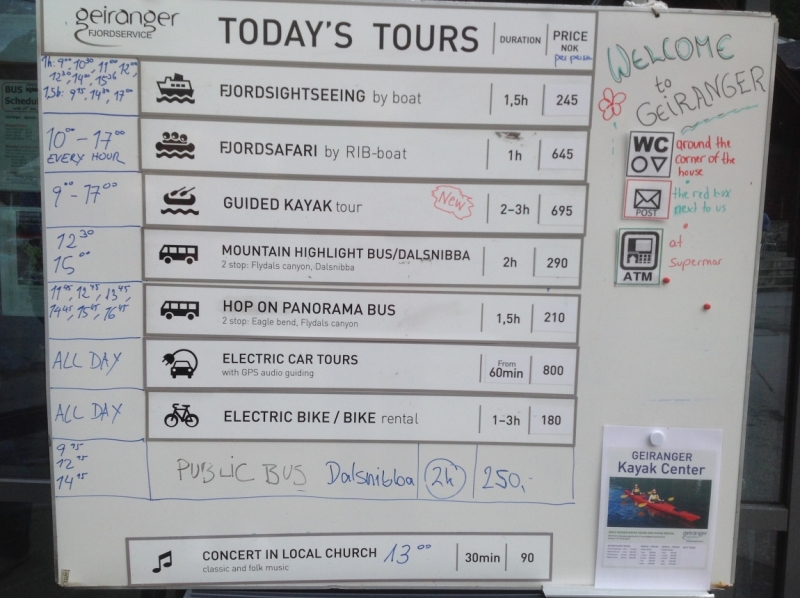 geiranger
FJORDSERVICE
TODAY'S TOURS
DURATION
PRICE
NOK
per person
1h: 9⁰⁰, 10³⁰, 11⁰⁰, 12⁰⁰,
12³⁰, 14⁰⁰, 15³⁰
1,5h: 9⁴⁵, 14³⁰, 17⁰⁰
FJORDSIGHTSEEING by boat
1,5h
245
10⁰⁰ - 17⁰⁰
EVERY HOUR
FJORDSAFARI by RIB-boat
1h
645
9⁰⁰ - 17⁰⁰
GUIDED KAYAK tour
New
2-3h
695
12³⁰
15⁰⁰
MOUNTAIN HIGHLIGHT BUS/DALSNIBBA
2 stop: Flydals canyon, Dalsnibba
2h
290
11⁴⁵, 12⁴⁵, 13⁴⁵,
14⁴⁵, 15⁴⁵, 16⁴⁵
HOP ON PANORAMA BUS
2 stop: Eagle bend, Flydals canyon
1,5h
210
ALL DAY
ELECTRIC CAR TOURS
with GPS audio guiding
From
60min
800
ALL DAY
ELECTRIC BIKE / BIKE rental
1-3h
180
9⁴⁵
12⁴⁵
14⁴⁵
PUBLIC BUS Dalsnibba
2h
250,-
CONCERT IN LOCAL CHURCH 13⁰⁰
classic and folk music
30min
90
WELCOME
to
GEiRANGER
WC
around the
corner of the
house
POST
the red box
next to us
ATM
at
Supermar
GEIRANGER
Kayak Center
geiranger
BUS
Schedu